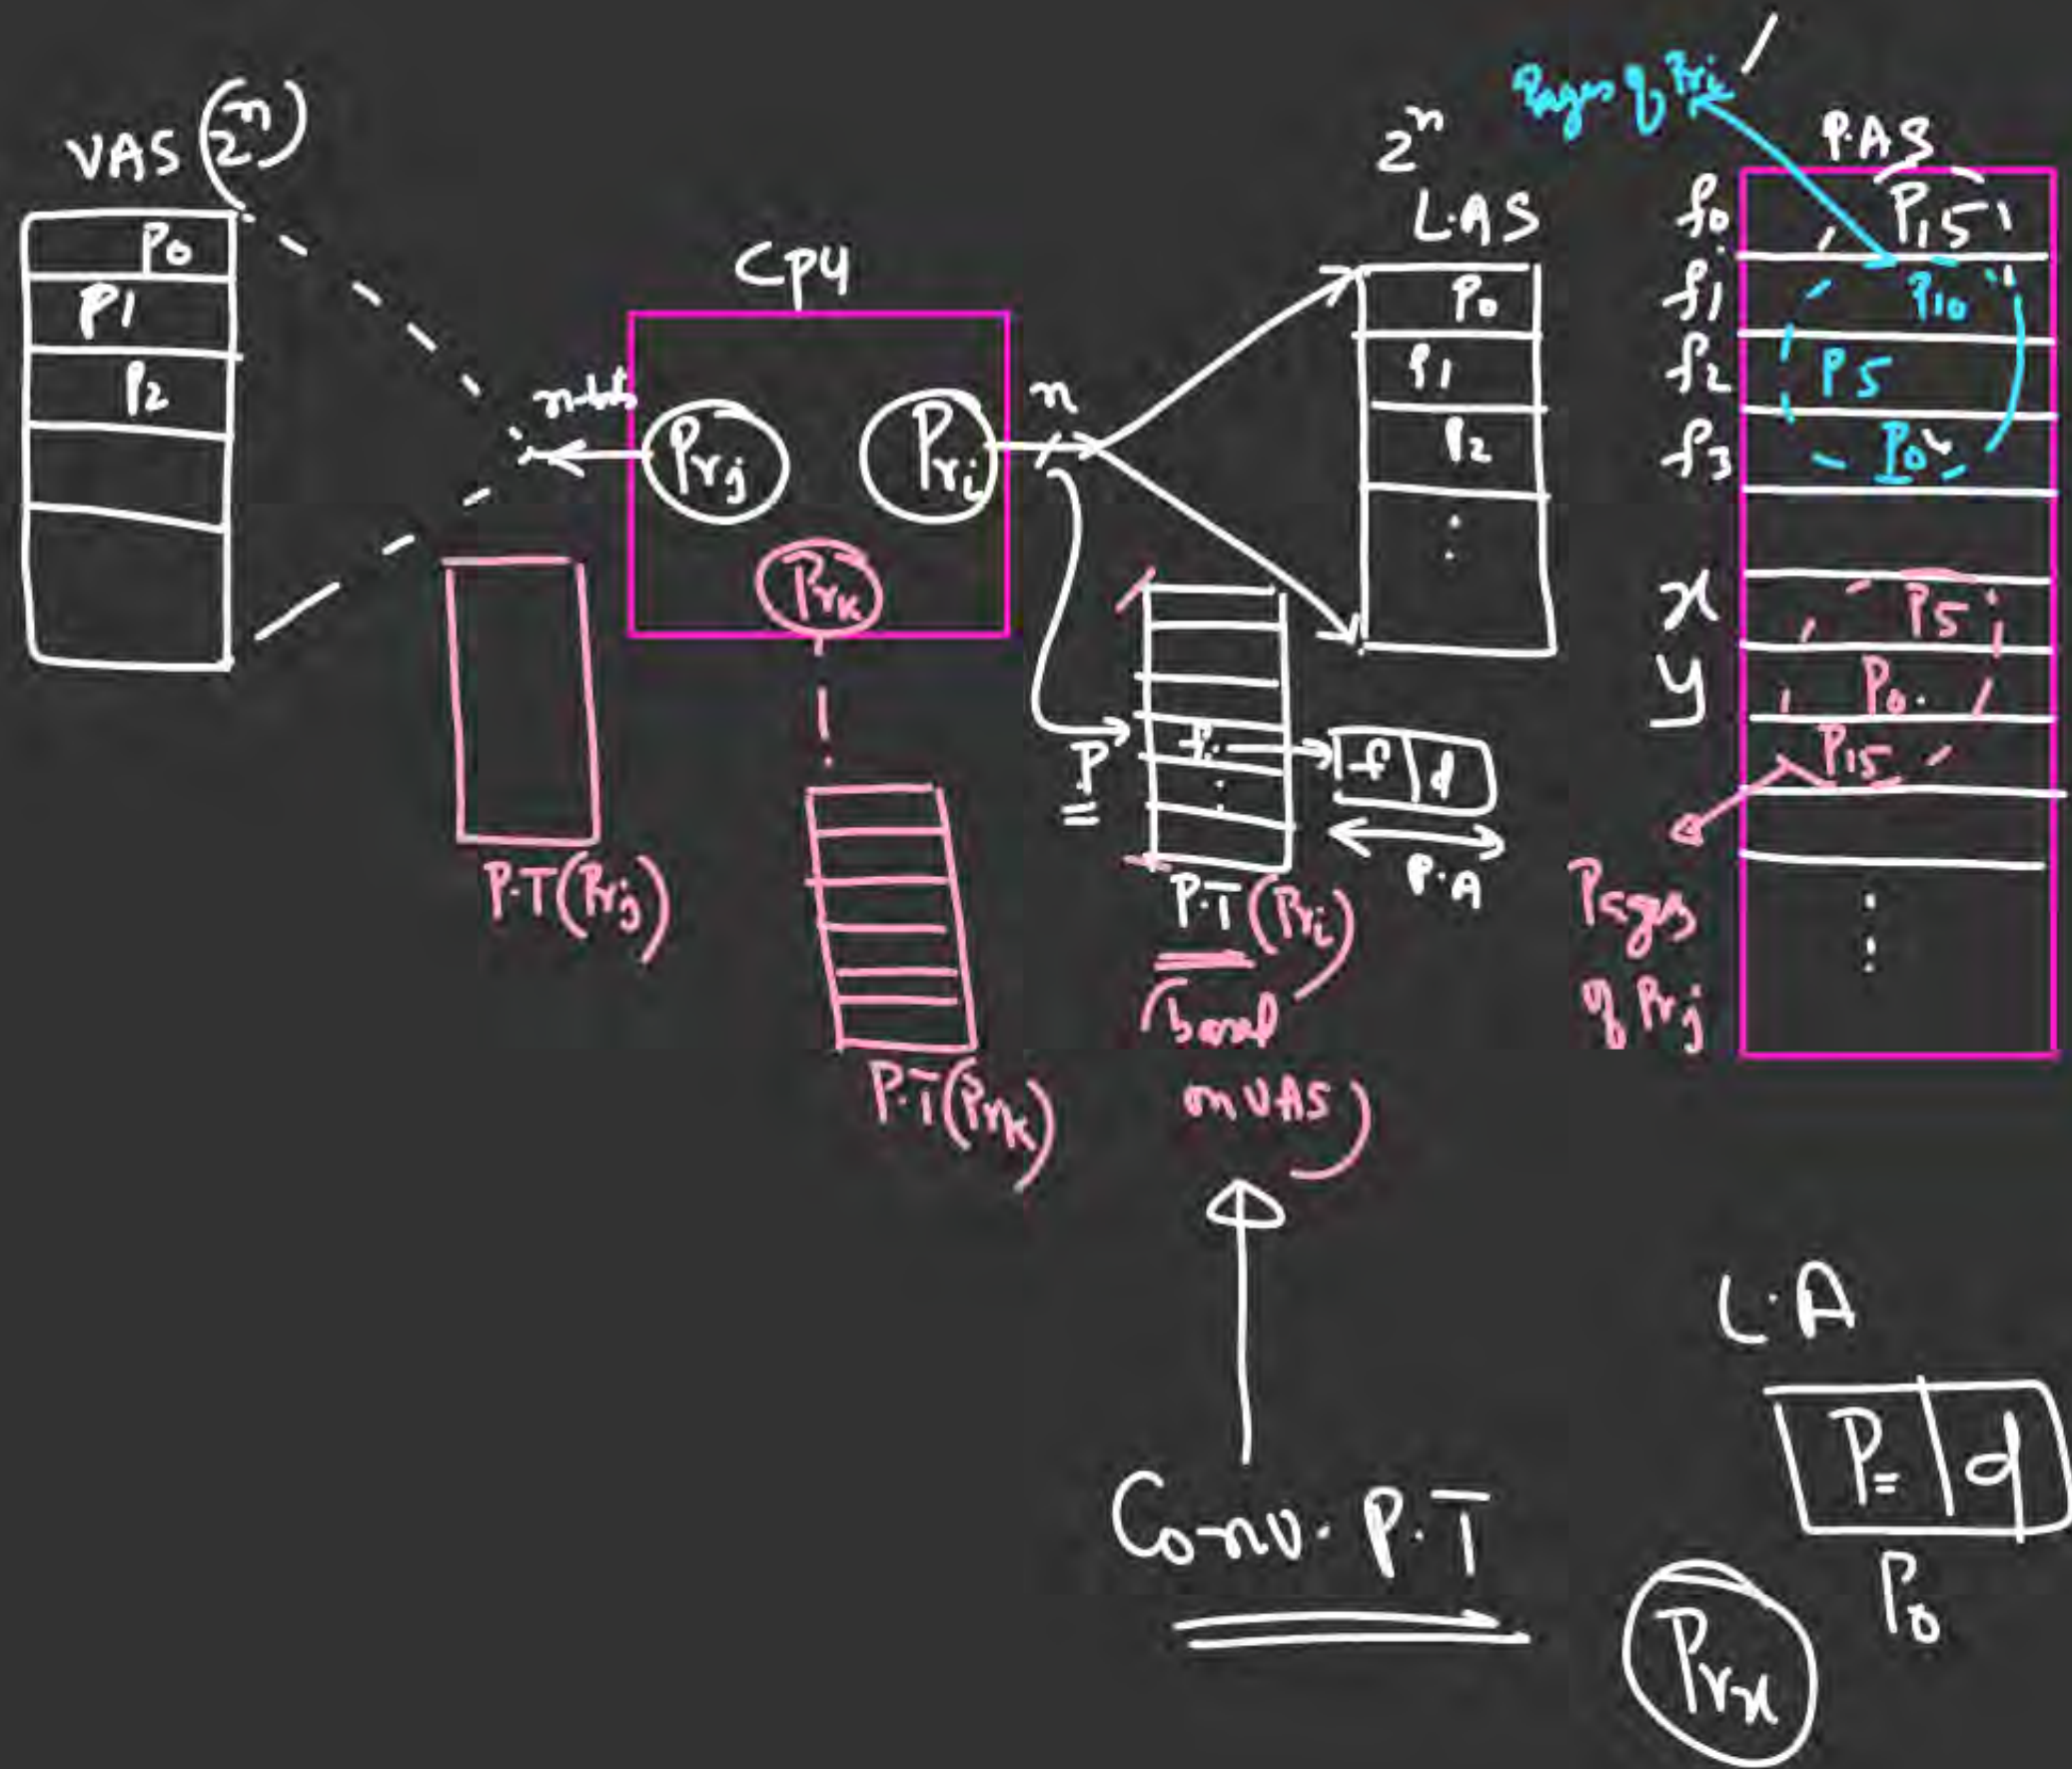 VAS (2^n)
P0
P1
P2
n-bits
CPU
Prj
Pri
Prk
n
2^n
L.A.S
P0
P1
P2
⋮
Pages of Pri
P.A.S
f0
P15
f1
P10
f2
P5
f3
P0
x
P5
y
P0
P15
⋮
Pages
of Prj
P
f
⋮
f d
P.A
P.T (Pri)
(based
on VAS)
P.T(Prj)
P.T(Prk)
Conv. P.T
L.A
P d
P0
Prx